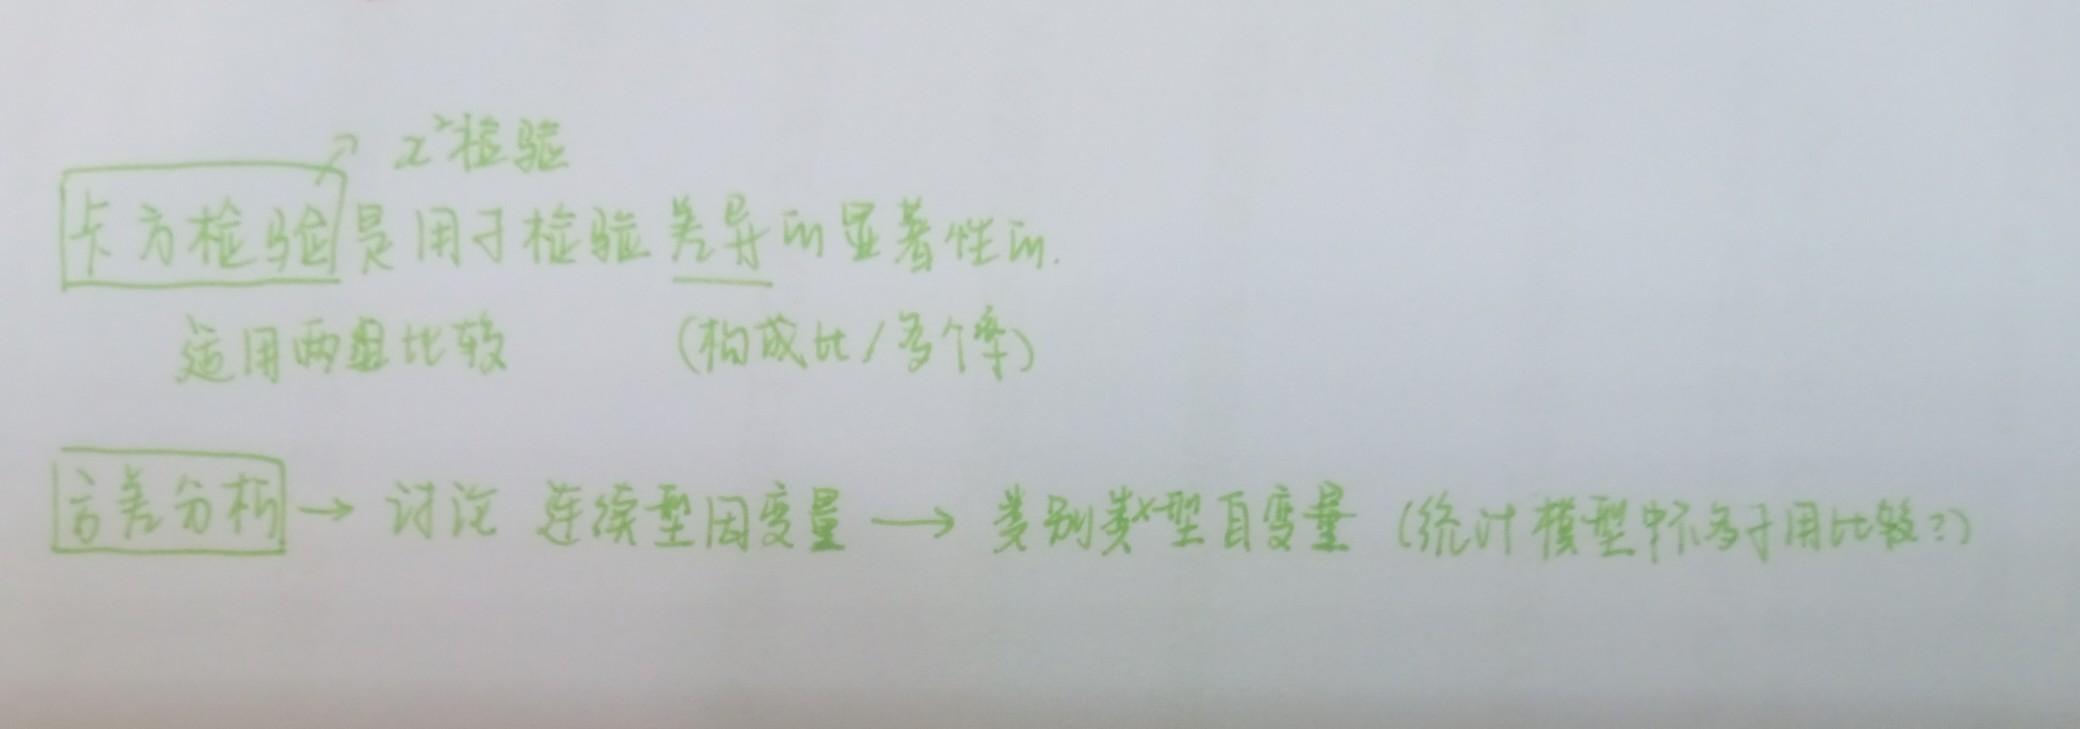 x²检验
卡方检验是用于检验差异的显著性的.
适用两组比较 (构成比/多个率)
方差分析 → 讨论 连续型因变量 → 类别类型自变量 (统计模型中 多于用比较?)